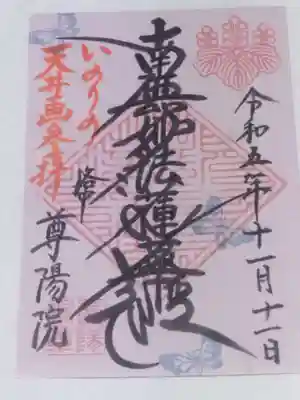 令和五年十一月十一日
南無妙法蓮華経
いのりの
天井画参拝
尊陽院